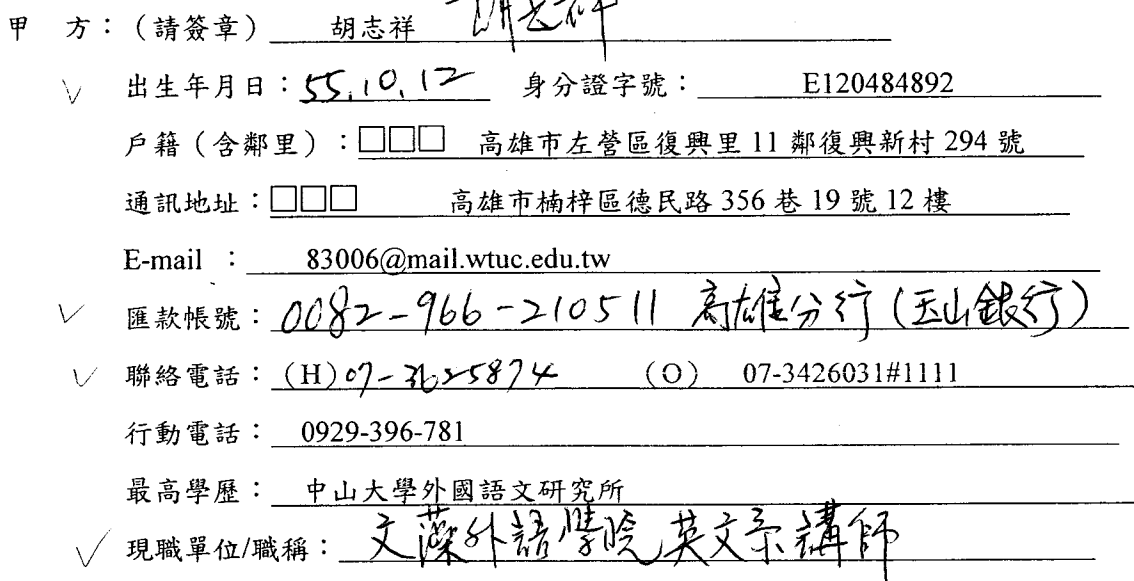 甲　方：（請簽章） 胡志祥 胡志祥
出生年月日：55.10.12 身分證字號： E120484892
戶籍（含鄰里）：□□□ 高雄市左營區復興里 11 鄰復興新村 294 號
通訊地址：□□□ 高雄市楠梓區德民路 356 巷 19 號 12 樓
E-mail ： 83006@mail.wtuc.edu.tw
匯款帳號：0082-966-210511 高雄分行（玉山銀行）
聯絡電話：（H）07-3625874 （O） 07-3426031#1111
行動電話： 0929-396-781
最高學歷： 中山大學外國語文研究所
現職單位/職稱： 文藻外語學院英文系講師